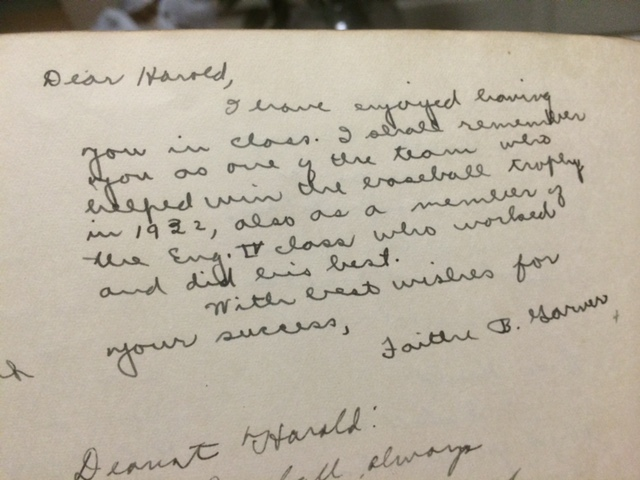 Dear Harold,
I have enjoyed having
you in class. I shall remember
you as one of the team who
helped win the baseball trophy
in 1932, also as a member of
the Eng. IV class who worked
and did his best.
With best wishes for
your success,
Faithe B. Garver
Dearest Harold:
always